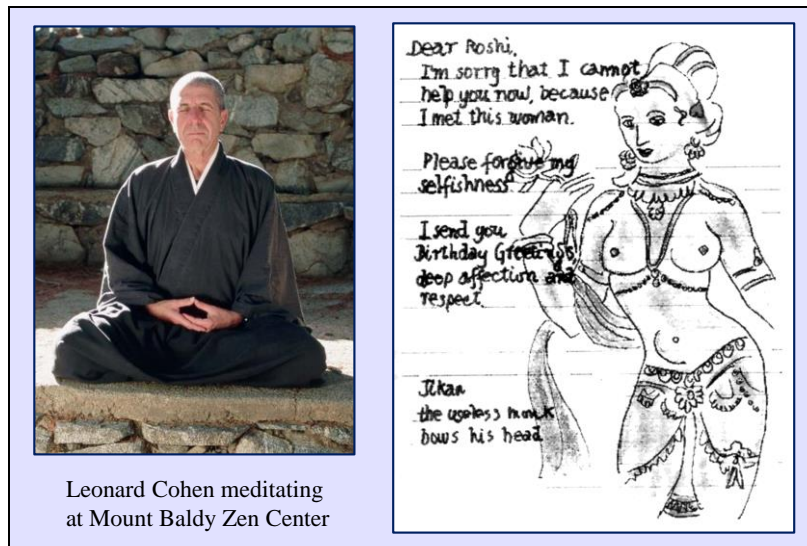 Leonard Cohen meditating
at Mount Baldy Zen Center
Dear Roshi,
I'm sorry that I cannot
help you now, because
I met this woman.
Please forgive my
selfishness
I send you
Birthday Greetings
deep affection and
respect.
Jikan
the useless monk
bows his head